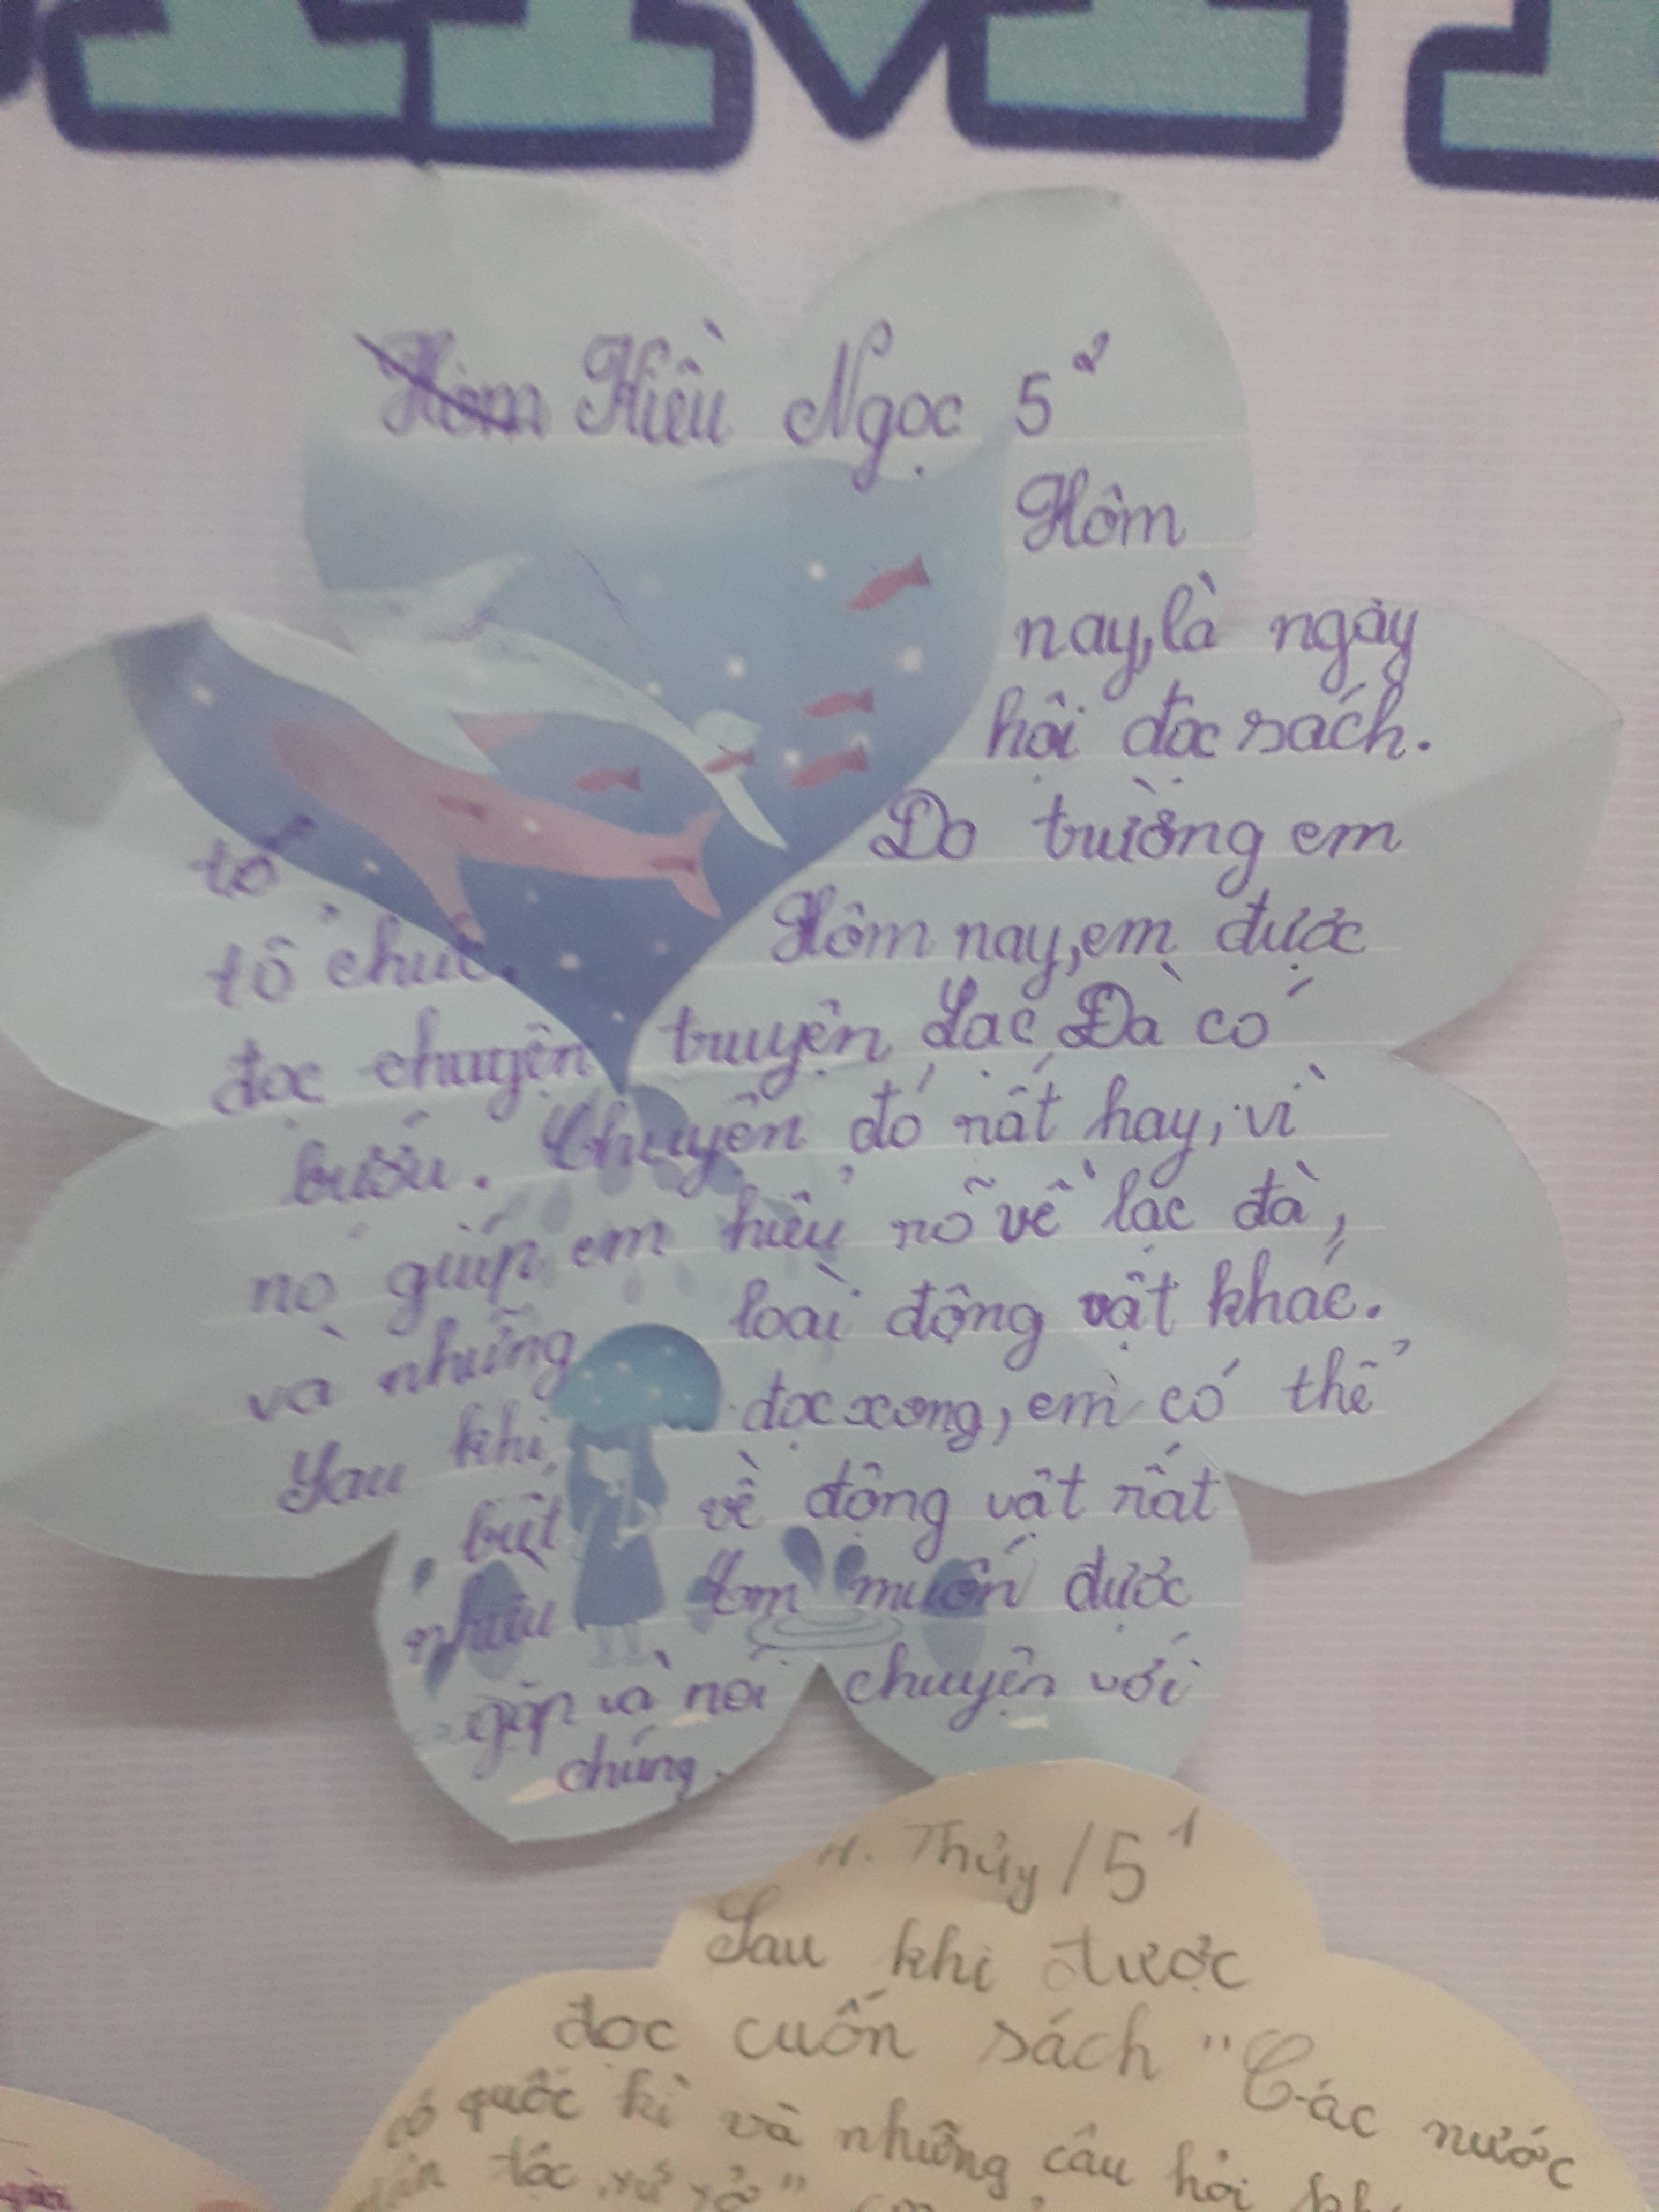 Hôm Hiền Ngọc 5²
Hôm
nay, là ngày
hội đọc sách.
Do trường em
tổ
tổ chức. Hôm nay, em được
đọc chuyện truyện Lạc Đà có
bướu. Chuyện đó rất hay, vì
nó giúp em hiểu rõ về lạc đà,
và những loài động vật khác.
Sau khi đọc xong, em có thể
biết về động vật rất
nhiều Em muốn được
gặp và nói chuyện với
chúng.
H. Thủy / 5¹
Sau khi được
đọc cuốn sách "Các nước
có quốc kì và những câu hỏi
dân tộc xứ sở"